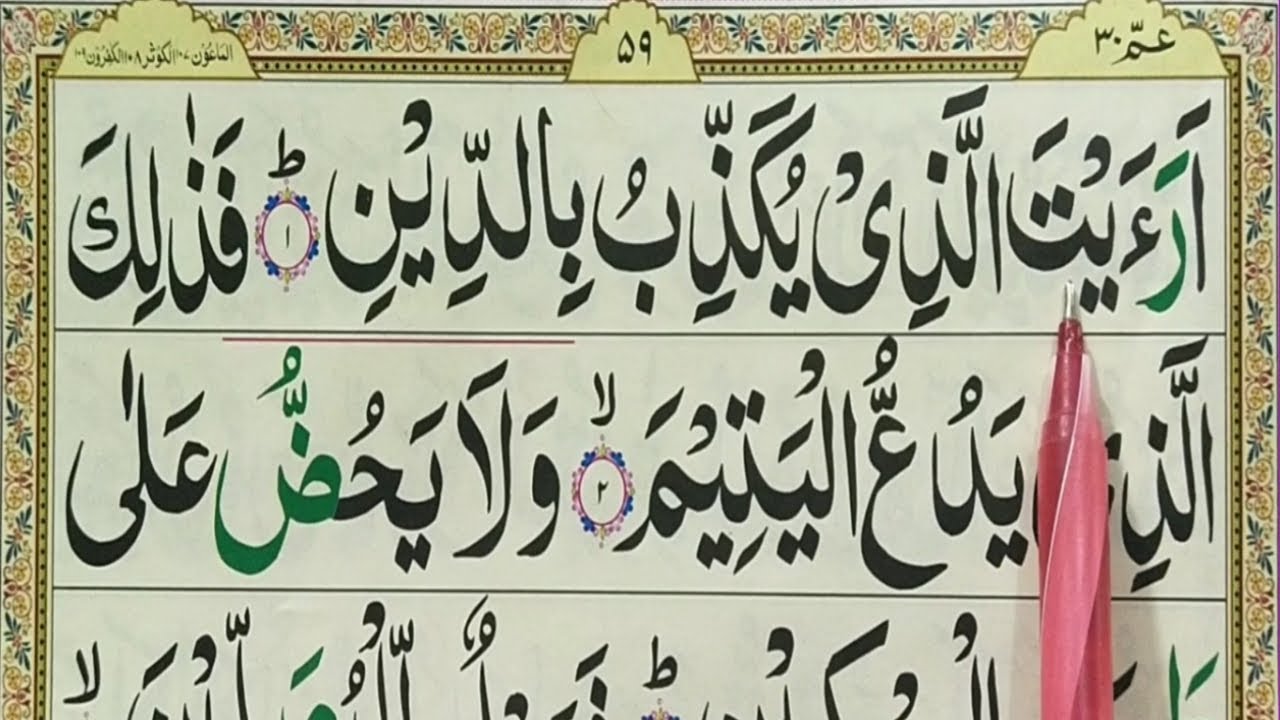 عمّ ٣٠ ۵۹ الماعون ١٠٧ الكوثر ١٠٨ الكفرون ١٠٩
اَرَءَيْتَ الَّذِىْ يُكَذِّبُ بِالدِّيْنِ ؕ ١ فَذٰلِكَ
الَّذِىْ يَدُعُّ الْيَتِيْمَ ۙ ٢ وَلَا يَحُضُّ عَلٰى